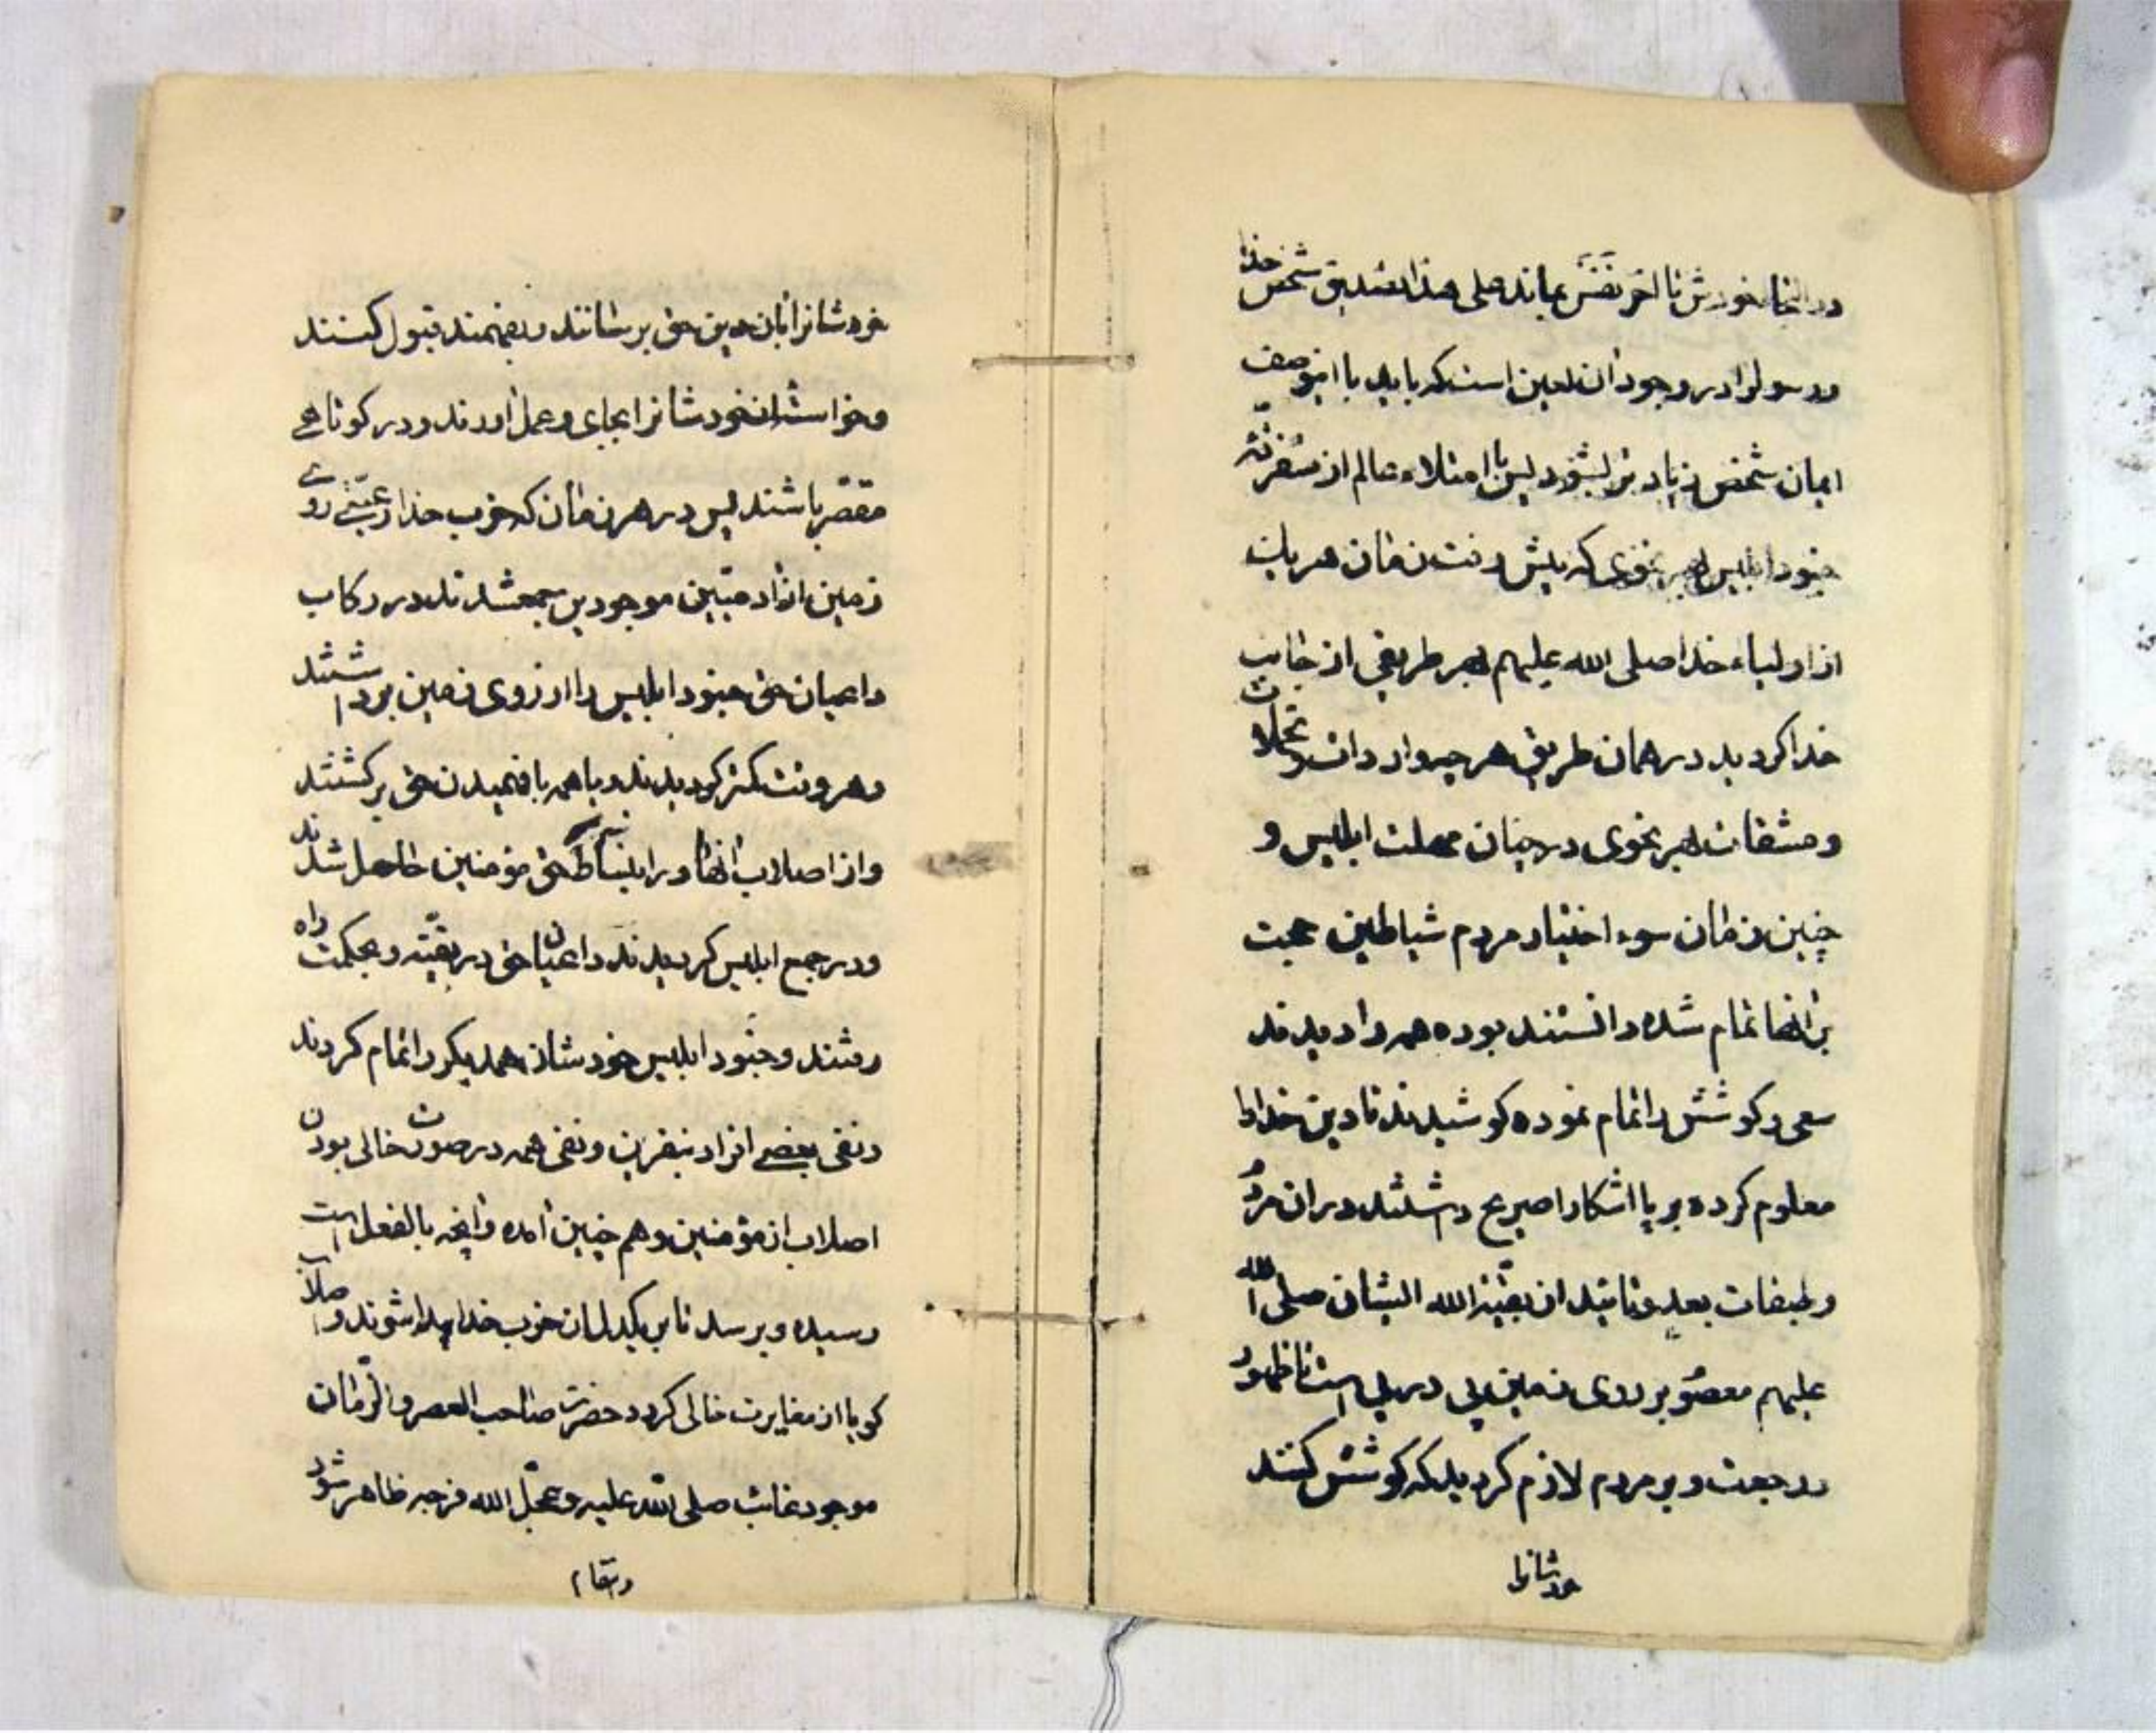 در انجا خودش تا آخر نفس بماند علی هذا تصدیق شخص خدا
و رسول را در وجود آن لعین است که باید با اینوصف
ایمان شخص زیادتر بشود پس با امتلاء عالم از
جنود ابلیس بهر نحوی که پیش رفت زمان هر یک
از اولیاء خدا صلی الله علیهم بهر طریقی از جانب
خدا کردید در همان طریق هر چه وارد تحملات
و مشقات بهر نحوی در چنان مهلت ابلیس و
چنین زمان سوء اختیار مردم شیاطین حجت
برانها تمام شده دانستند بوده همه را دیدند
سعی و کوشش را تمام نموده کوشیدند تا دین خدا را
معلوم کرده بر پا اشکارا صریح داشتند در ان مردم
و طبقات بعد و تائید از بقیة الله ایشان صلی الله
علیهم معصوم بر روی زمین پی در پی است تا ظهور
و رجعت و بر مردم لازم کردید که کوشش کنند
خودشانرا
خودشانرا بان دین حق برسانند و بفهمند قبول کنند
و خواست ان خودشانرا بجای و عمل اورند و در کوتاهی
مقصر باشند پس در هر زمان که حزب خدا از روی
زمین افراد مبین موجودین جمعشدند در رکاب
داعیان حق جنود ابلیس را از روی زمین برداشتند
و هر وقت کمتر کردیدند و یا همه با فهمیدن حق برکشتند
و از اصلاب انها حق مؤمنین حاصل شدند
و در جمع ابلیس کردیدند داعیان حق در تقیّه و بحکمت راه
رفتند و جنود ابلیس خودشان همدیکر را تمام کردند
و نفی بعضی افراد بنفرین و نفی همه در صورت خالی بودن
اصلاب از مؤمنین و هم چنین آمده و آنچه بالفعل است
رسیده و برسد تا بر یکدلان حزب خدا پیدا شوند و اصلاب
کویا از مغایرت خالی کردد حضرت صاحب العصر و الزّمان
موجود غائب صلی الله علیه و عجّل الله فرجه ظاهر شود
و انتقام